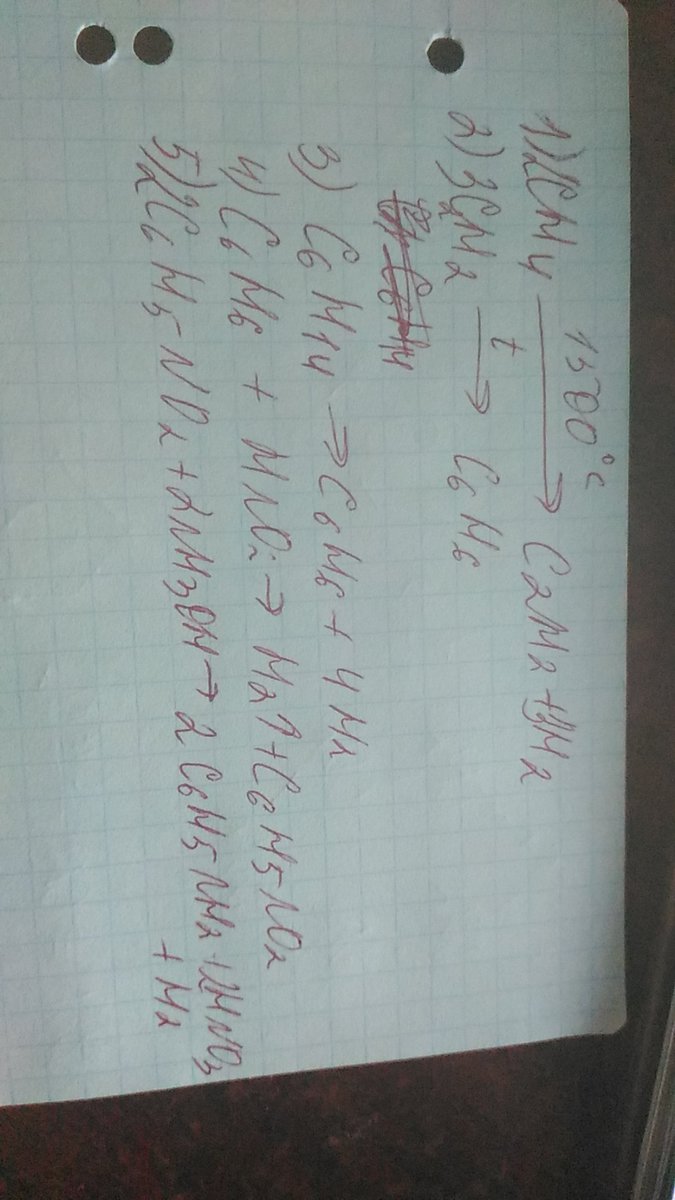 1500°C
1) 2CH4 → C2H2 + 3H2
t
2) 3C2H2 → C6H6
3) C6H14 → C6H6 + 4H2
4) C6H6 + HNO2 → H2↑ + C6H5NO2
5) 2C6H5NO2 + 2NH3OH → 2C6H5NH2 + 2HNO3
+ H2